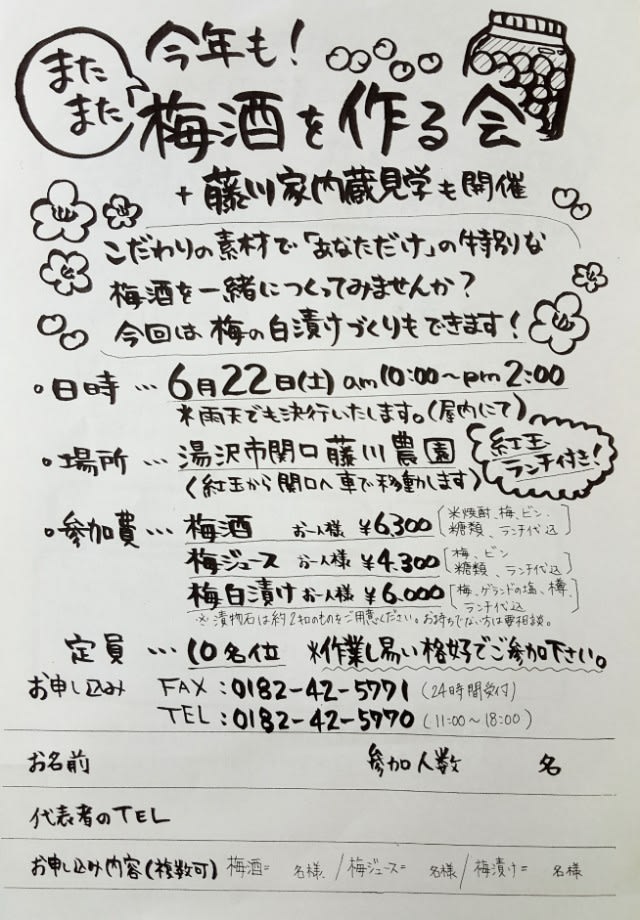 また
また
今年も!
梅酒を作る会
+ 藤川家内蔵見学も開催
こだわりの素材で「あなただけ」の特別な
梅酒を一緒につくってみませんか?
今回は、梅の白漬けづくりもできます!
・日時 … 6月22日(土) am10:00〜pm2:00
※雨天でも決行いたします。(屋内にて)
・場所 … 湯沢市関口 藤川農園
(紅玉から関口へ車で移動します)
紅玉
ランチ付き!
・参加費 … 梅酒 お一人様 ¥6,300 [米焼酎、梅、ビン、
糖類、ランチ代込]
梅ジュース お一人様 ¥4,300 [梅、ビン
糖類、ランチ代込]
梅白漬け お一人様 ¥6,000 [梅、ゲランドの塩、樽、
ランチ代込]
※漬物石は約2キロのものをご用意ください。お持ちでない方は要相談。
定員 … 10名位 ※作業し易い格好でご参加下さい。
お申し込み FAX:0182-42-5771 (24時間受付)
TEL:0182-42-5770 (11:00〜18:00)
お名前 参加人数 名
代表者のTEL
お申し込み内容(複数可) 梅酒= 名様 / 梅ジュース= 名様 / 梅漬け= 名様